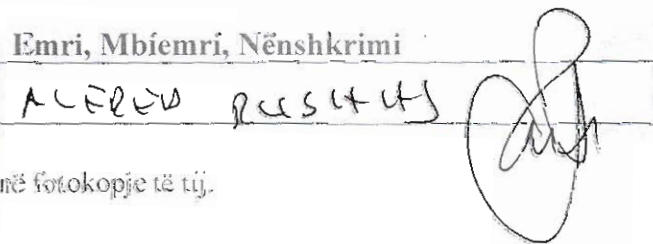 Emri, Mbiemri, Nënshkrimi
ALFRED RUSHAJ
në fotokopje të tij.